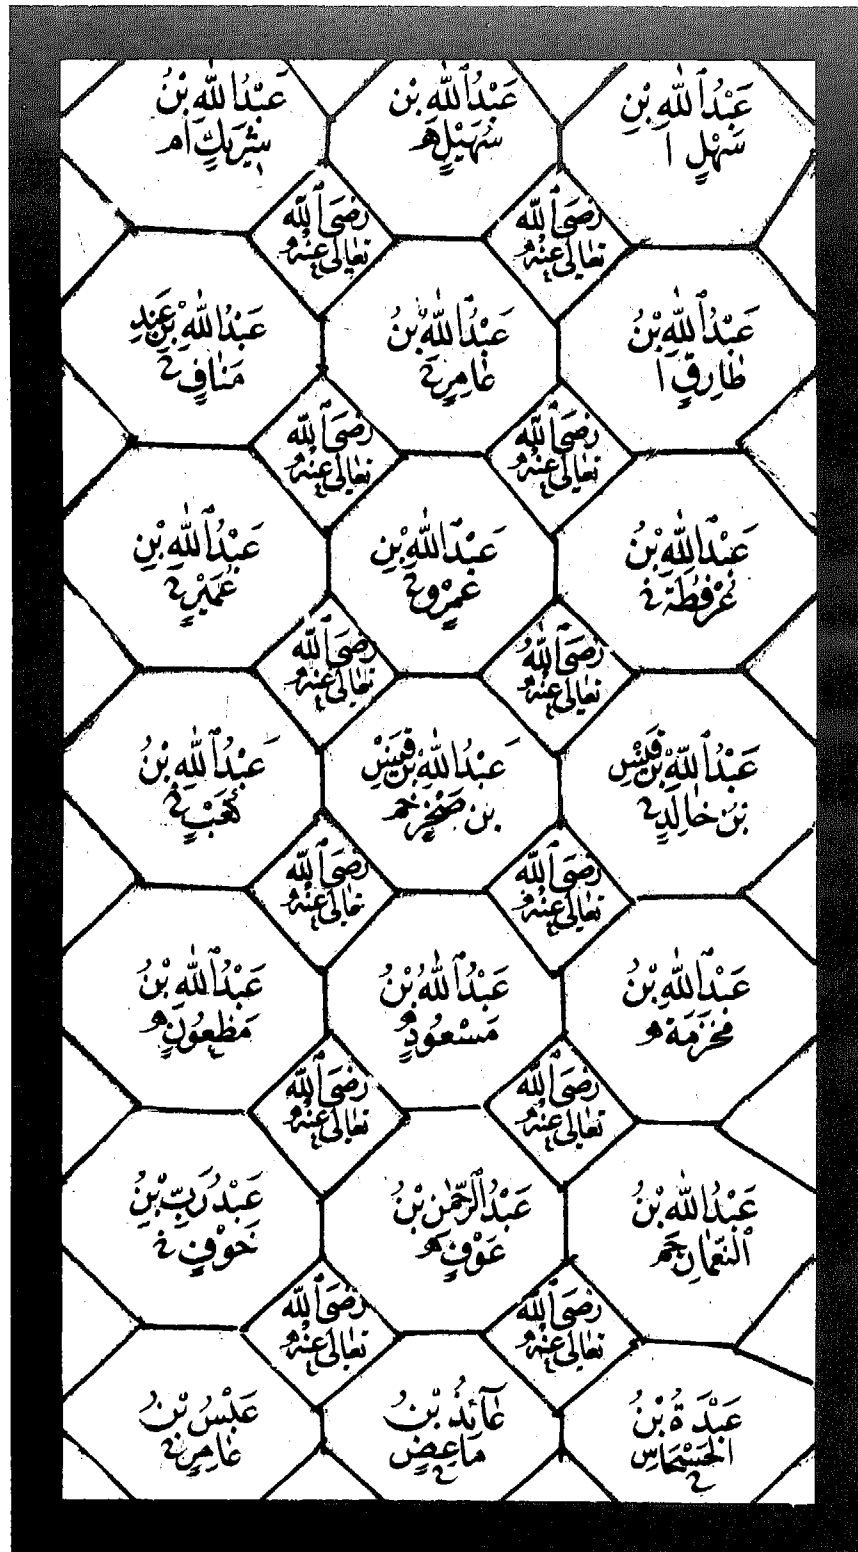 عَبْدُ اللهِ بْنِ
سَهْلٍ ا
عَبْدُ اللهِ بْنِ
سُهَيْلٍ م
عَبْدُ اللهِ بْنُ
شَرِيكٍ ام
رَضِيَ اللّٰه
تعالى عنه
رَضِيَ اللّٰه
تعالى عنه
عَبْدُ اللهِ بْنُ
طَارِقٍ ا
عَبْدُ اللهِ بْنُ
عَامِرٍ خ
عَبْدُ اللهِ بْنِ عَبْدِ
مَنَافٍ خ
رَضِيَ اللّٰه
تعالى عنه
رَضِيَ اللّٰه
تعالى عنه
عَبْدُ اللهِ بْنُ
عُرْفُطَةَ خ
عَبْدُ اللهِ بْنِ
عَمْرٍو خ
عَبْدُ اللهِ بْنِ
عُمَيْرٍ خ
رَضِيَ اللّٰه
تعالى عنه
رَضِيَ اللّٰه
تعالى عنه
عَبْدُ اللهِ بْنِ قَيْسٍ
بْنِ خَالِدٍ خ
عَبْدُ اللهِ بْنِ قَيْسٍ
بن صَخْرٍ خم
عَبْدُ اللهِ بْنُ
كَعْبٍ خ
رَضِيَ اللّٰه
تعالى عنه
رَضِيَ اللّٰه
تعالى عنه
عَبْدُ اللهِ بْنُ
مَخْرَمَةَ م
عَبْدُ اللهِ بْنُ
مَسْعُودٍ م
عَبْدُ اللهِ بْنُ
مَظْعُونٍ م
رَضِيَ اللّٰه
تعالى عنه
رَضِيَ اللّٰه
تعالى عنه
عَبْدُ اللهِ بْنُ
النُّعْمَانِ خم
عَبْدُ الرَّحْمٰنِ بْنُ
عَوْفٍ م
عَبْدُ رَبِّ بْنِ
حَوْفٍ خ
رَضِيَ اللّٰه
تعالى عنه
رَضِيَ اللّٰه
تعالى عنه
عَبْدَةُ بْنُ
الحَسْحَاسِ
خ
عَائِذُ بْنُ
مَاعِصٍ
خ
عَبْسُ بْنُ
عَامِرٍ خ